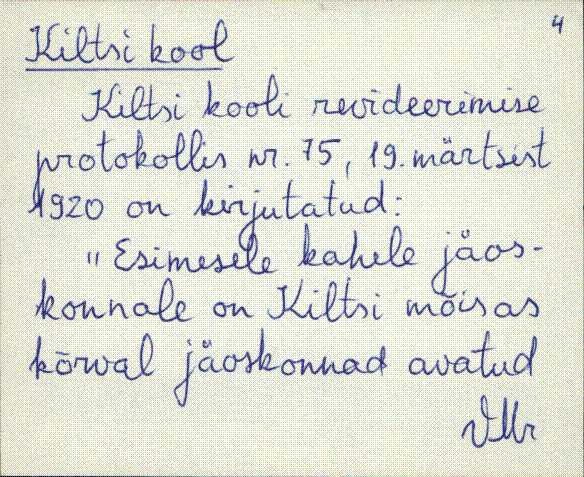 4
Kiltsi kool
Kiltsi kooli revideerimise
protokollis nr. 75, 19. märtsist
1920 on kirjutatud:
"Esimesele kahele jäos-
konnale on Kiltsi mõisas
kõrval jäoskonnad avatud